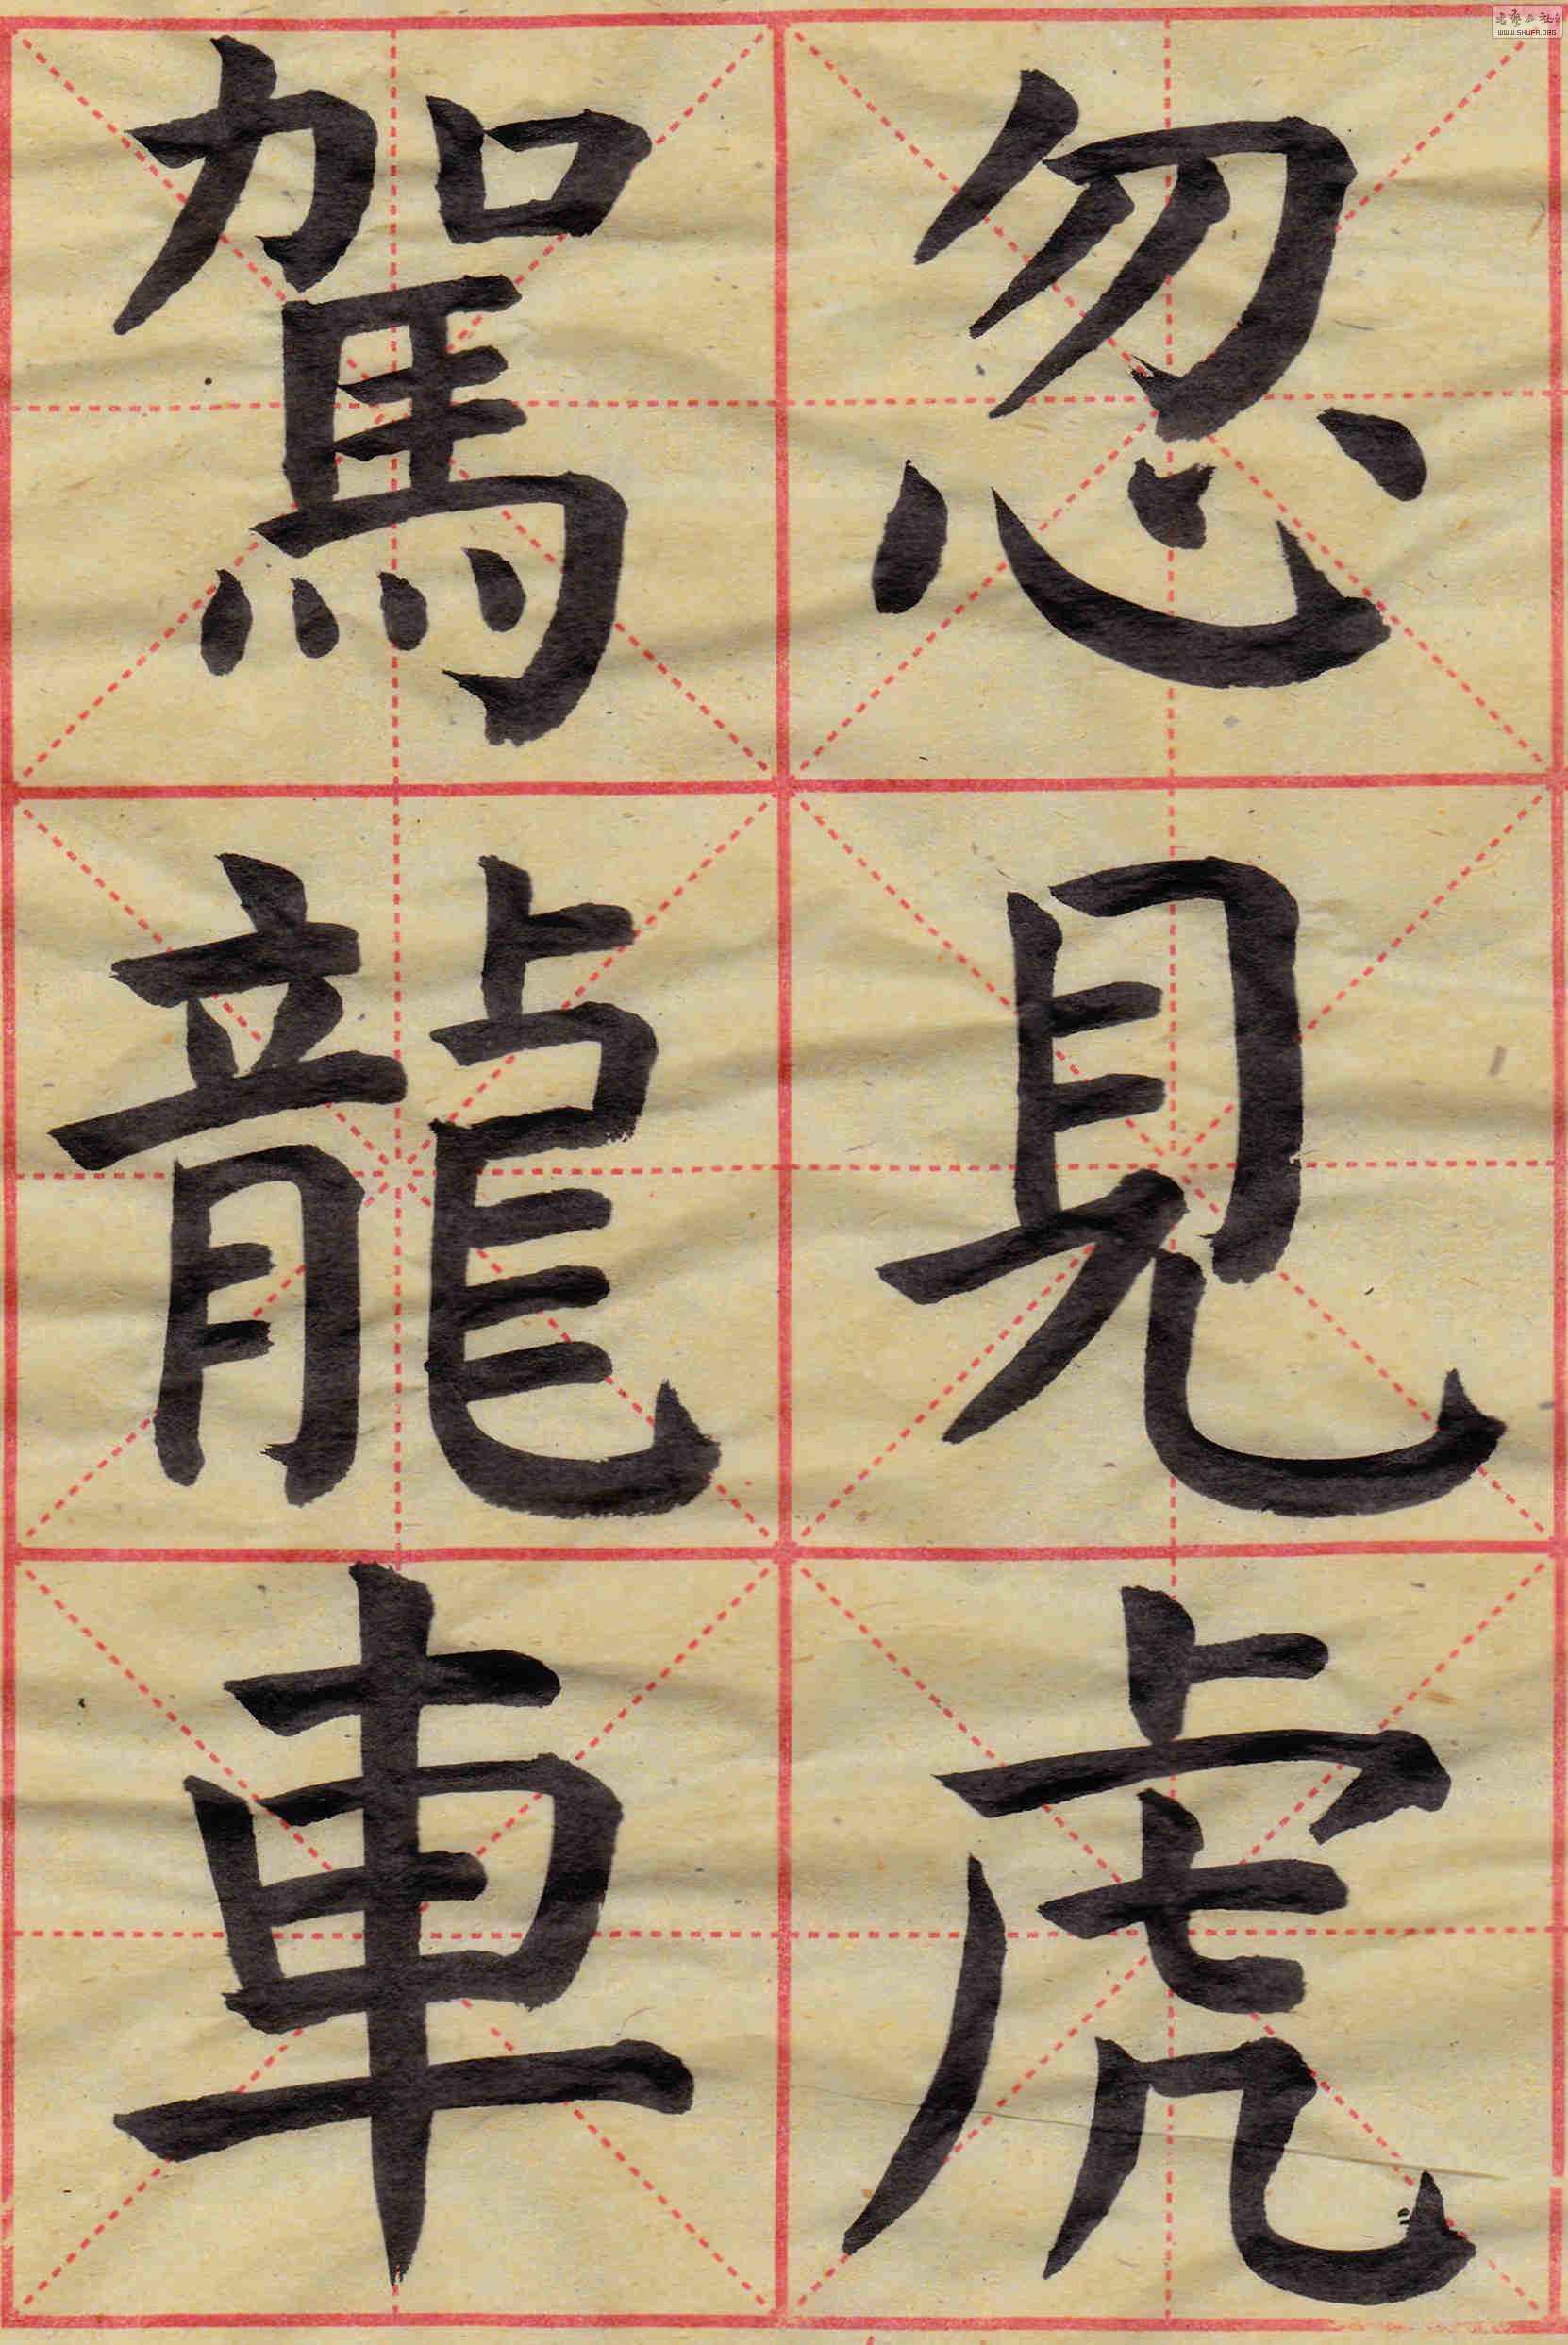 忽見虎
駕龍車
WWW.SHUFA.ORG